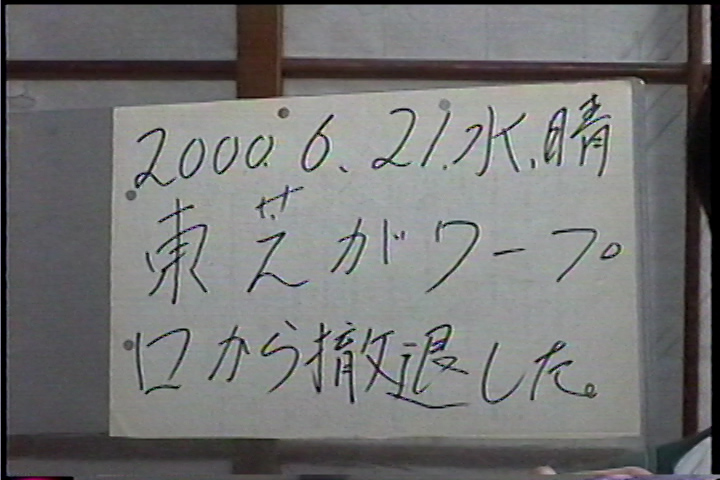 2000.6.21.水.晴
東芝がワープ
ロから撤退した。